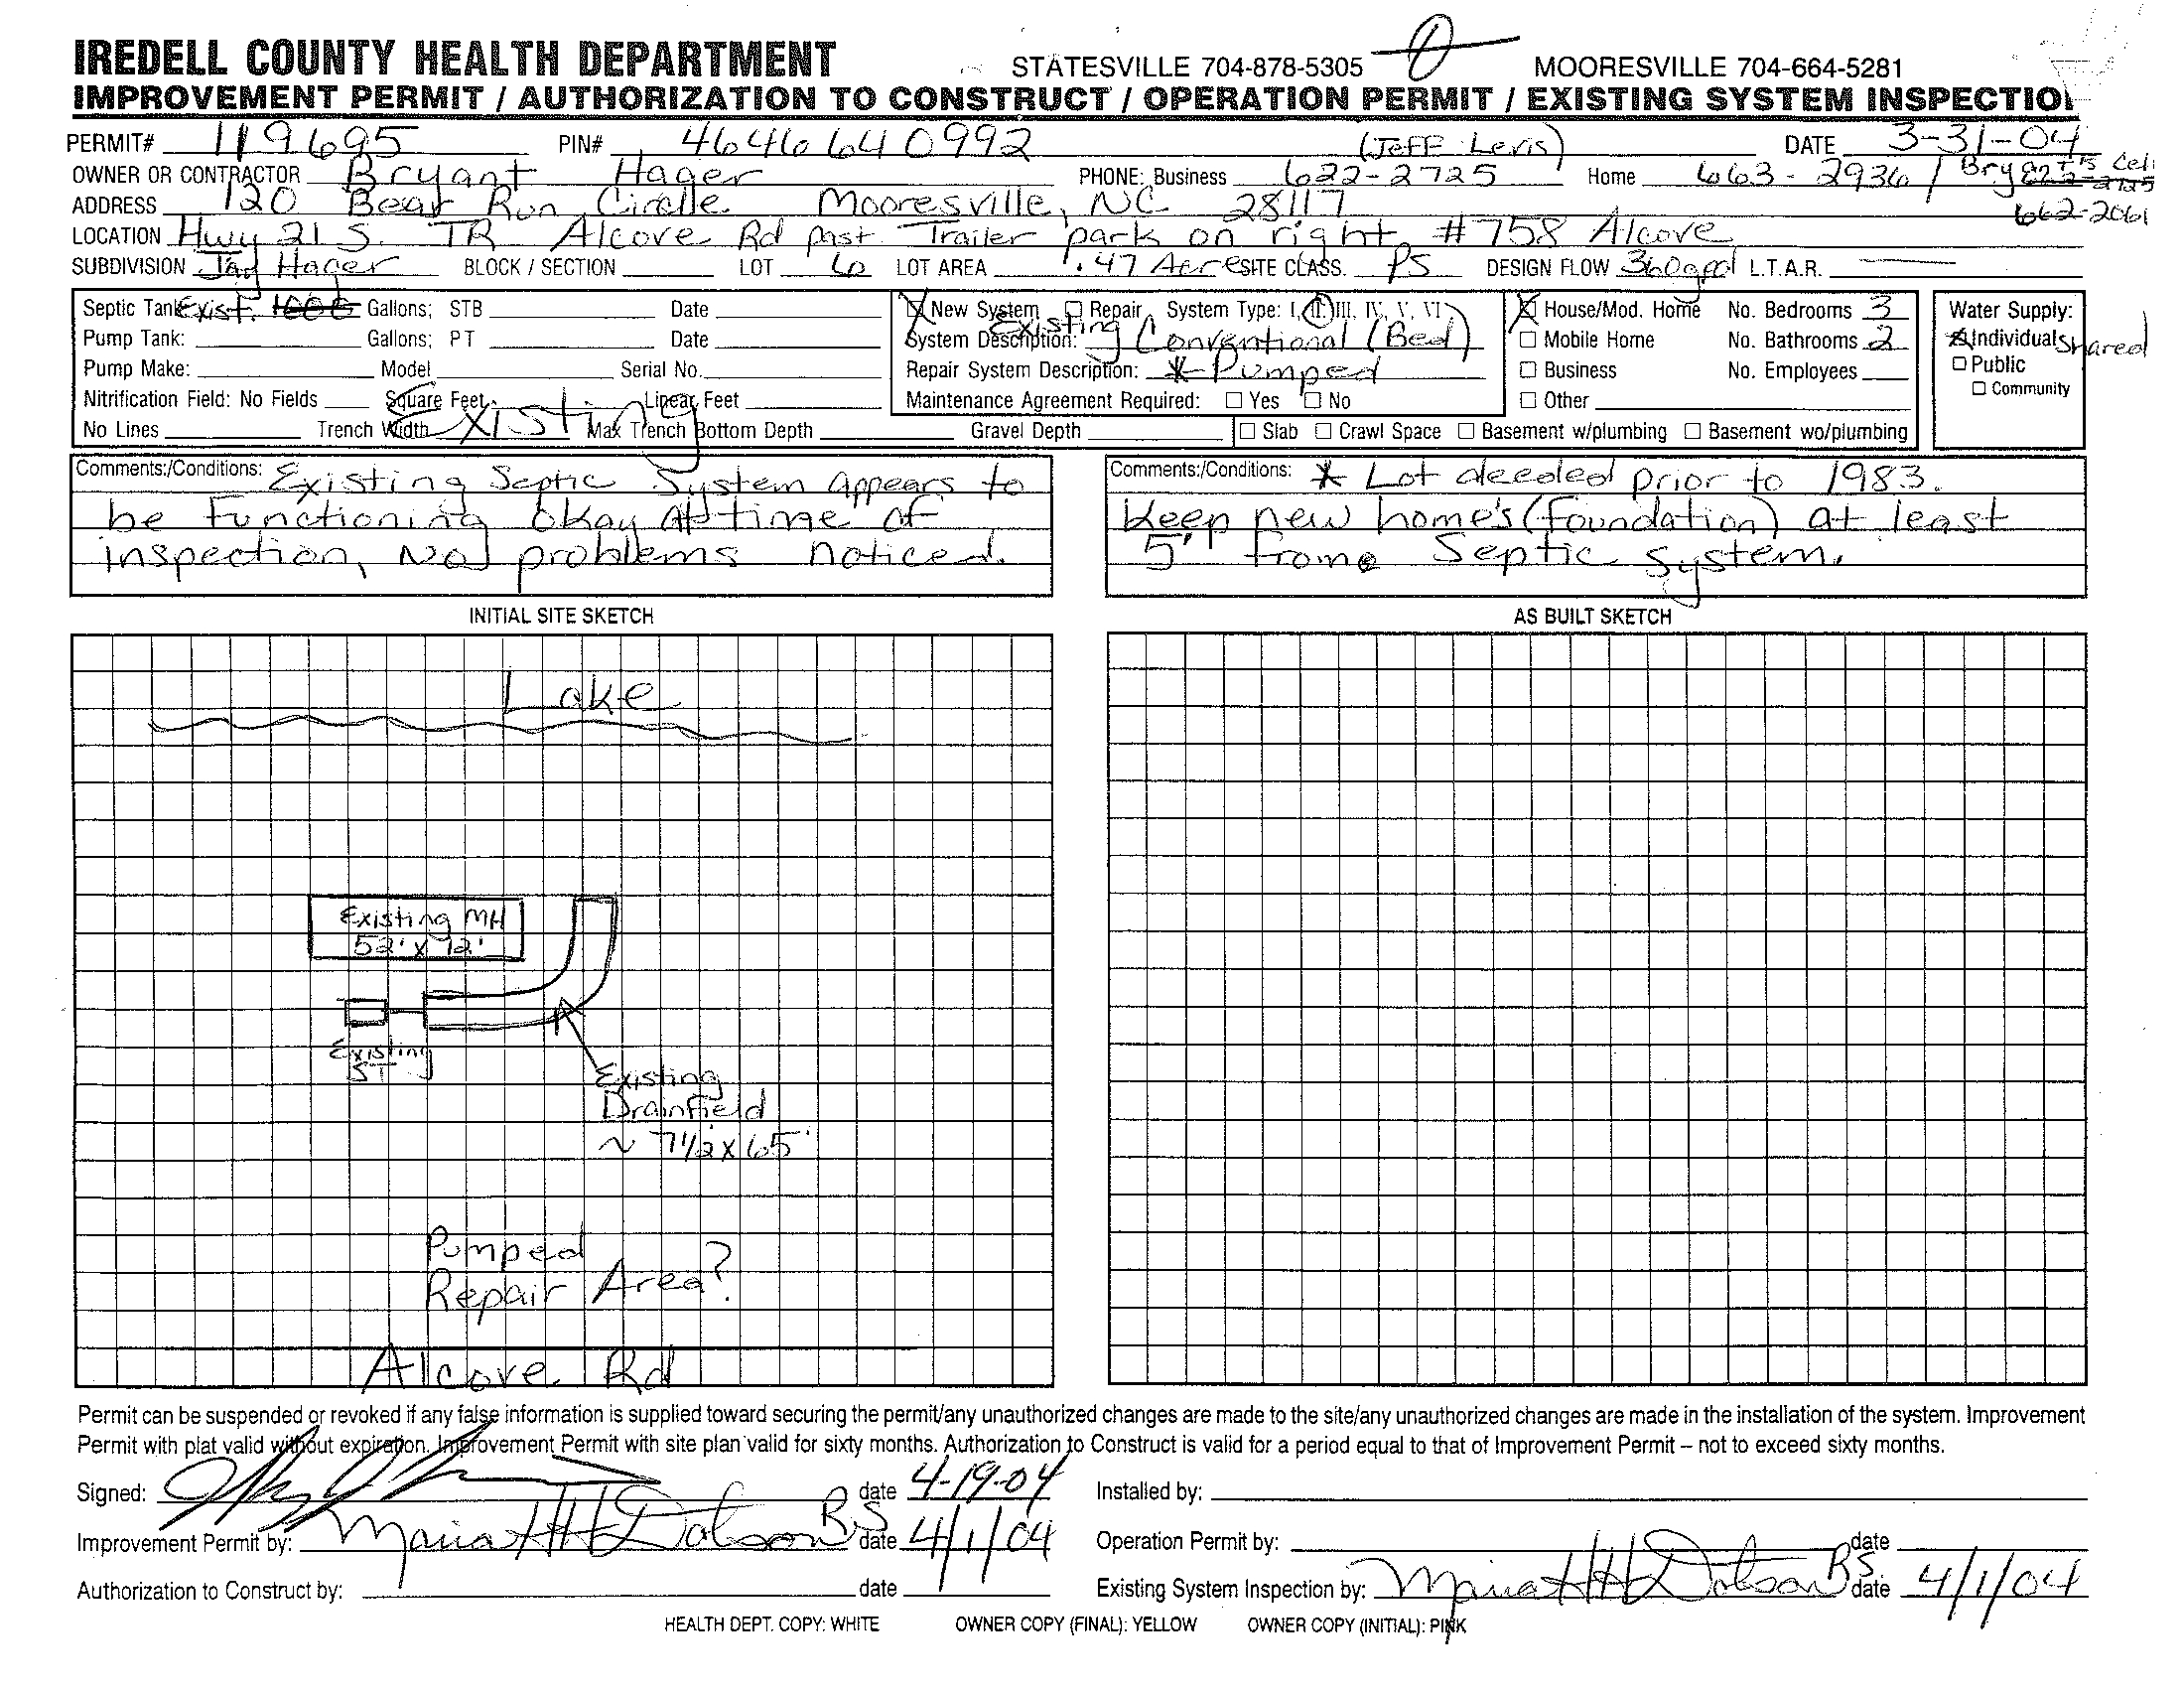 IREDELL COUNTY HEALTH DEPARTMENT STATESVILLE 704-878-5305 MOORESVILLE 704-664-5281
IMPROVEMENT PERMIT / AUTHORIZATION TO CONSTRUCT / OPERATION PERMIT / EXISTING SYSTEM INSPECTIO
PERMIT# 119695 PIN# 4646640992 (Jeff Levis) DATE 3-31-04
OWNER OR CONTRACTOR Bryant Hager PHONE: Business 622-2725 Home 663-2936 / Bryant's Cell
ADDRESS 120 Bear Run Circle Mooresville, NC 28117 662-2061
LOCATION Hwy 21 S. TR Alcove Rd past Trailer park on right #758 Alcove
SUBDIVISION Jay Hager BLOCK / SECTION LOT 6 LOT AREA .47 Acre SITE CLASS. PS DESIGN FLOW 360gpd L.T.A.R.
Septic Tank Exist. 1000 Gallons; STB Date
Pump Tank: Gallons; PT Date
Pump Make: Model Serial No.
Nitrification Field: No Fields Square Feet Linear Feet
No Lines Trench Width Existing Max Trench Bottom Depth Gravel Depth
X New System Repair System Type: I, II, III, IV, V, VI
System Description: Existing Conventional (Bed)
Repair System Description: * Pumped
Maintenance Agreement Required: Yes No
X House/Mod. Home No. Bedrooms 3
Mobile Home No. Bathrooms 2
Business No. Employees
Other
Slab Crawl Space Basement w/plumbing Basement wo/plumbing
Water Supply:
X Individual Shared
Public
Community
Comments:/Conditions: Existing Septic System appears to
be functioning okay at time of
inspection, No problems noticed.
Comments:/Conditions: * Lot deeded prior to 1983.
Keep new home's (foundation) at least
5' from Septic System.
INITIAL SITE SKETCH
Lake
Existing MH
52' X 12'
Existing
ST
Existing
Drainfield
~ 7 1/2 X 65'
Pumped
Repair Area?
Alcove Rd
AS BUILT SKETCH
Permit can be suspended or revoked if any false information is supplied toward securing the permit/any unauthorized changes are made to the site/any unauthorized changes are made in the installation of the system. Improvement
Permit with plat valid without expiration. Improvement Permit with site plan valid for sixty months. Authorization to Construct is valid for a period equal to that of Improvement Permit – not to exceed sixty months.
Signed: date 4-19-04 Installed by:
Improvement Permit by: Maria H Dotson RS date 4/1/04 Operation Permit by: date
Authorization to Construct by: date Existing System Inspection by: Maria H Dotson RS date 4/1/04
HEALTH DEPT. COPY: WHITE OWNER COPY (FINAL): YELLOW OWNER COPY (INITIAL): PINK